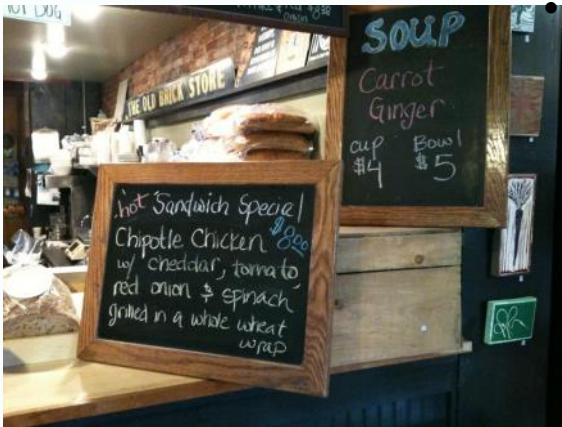 HOT DOG
THE OLD BRICK STORE
SOUP
Carrot
Ginger
cup Bowl
$4 $5
hot Sandwich Special
Chipotle Chicken $8.00
w/ cheddar, tomato,
red onion & spinach
grilled in a whole wheat
wrap